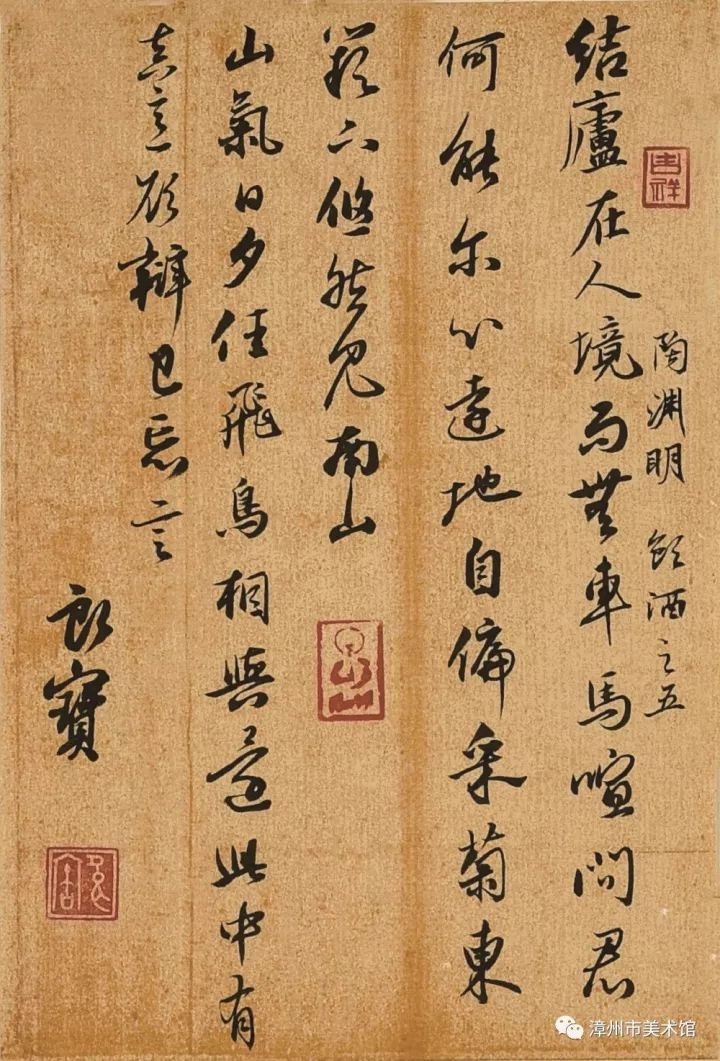 吉祥
陶渊明 飲酒之五
結廬在人境而無車馬喧問君
何能尔心遠地自偏采菊東
籬下悠然見南山
山氣日夕佳飛鳥相與還此中有
真意欲辯已忘言
寶
漳州市美术馆